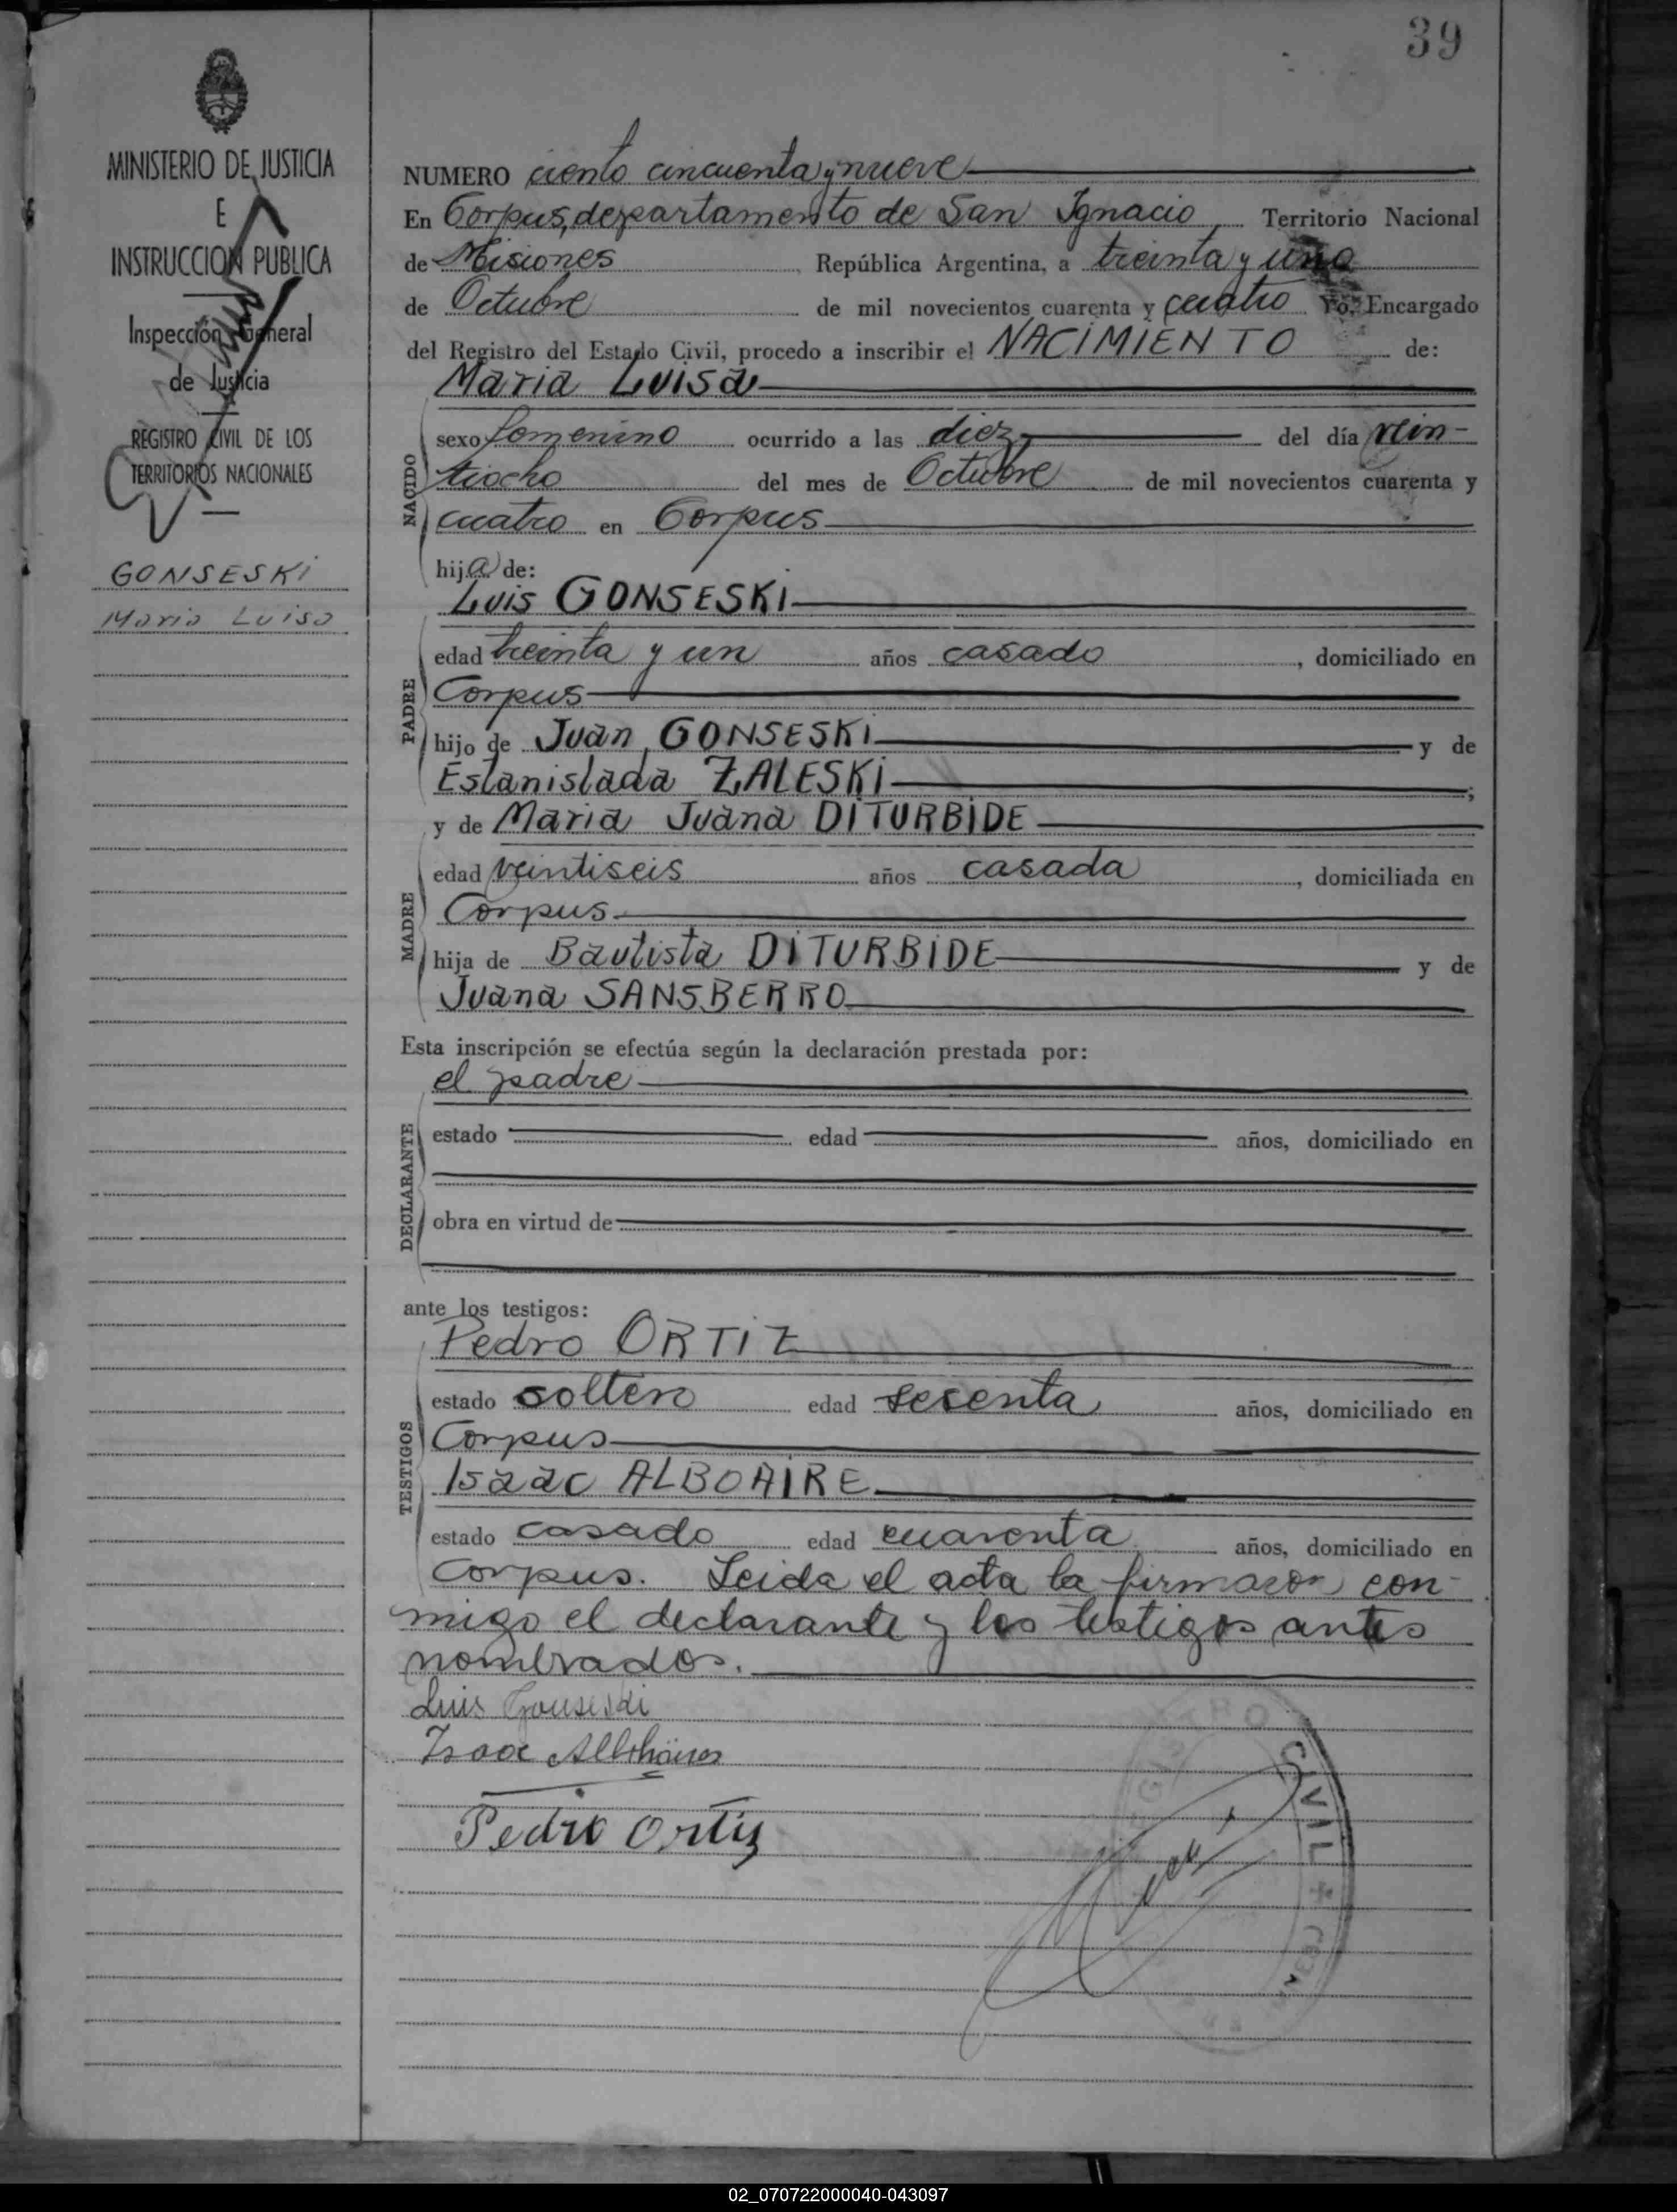 39
MINISTERIO DE JUSTICIA
E
INSTRUCCION PUBLICA
Inspección General
de Justicia
REGISTRO CIVIL DE LOS
TERRITORIOS NACIONALES
GONSESKI
Maria Luisa
NUMERO ciento cincuenta y nueve
En Corpus, departamento de San Ignacio Territorio Nacional
de Misiones, República Argentina, a treinta y uno
de Octubre de mil novecientos cuarenta y cuatro Yo, Encargado
del Registro del Estado Civil, procedo a inscribir el NACIMIENTO de:
Maria Luisa
NACIDO
sexo femenino ocurrido a las diez, del día vein-
tiocho del mes de Octubre de mil novecientos cuarenta y
cuatro en Corpus
hija de:
Luis GONSESKI
PADRE
edad treinta y un años casado, domiciliado en
Corpus
hijo de Juan GONSESKI y de
Estanislada ZALESKI;
y de Maria Juana DITURBIDE
MADRE
edad veintiseis años casada, domiciliada en
Corpus.
hija de Bautista DITURBIDE y de
Juana SANSBERRO
Esta inscripción se efectúa según la declaración prestada por:
el padre
DECLARANTE
estado edad años, domiciliado en
obra en virtud de
ante los testigos:
Pedro ORTIZ
TESTIGOS
estado soltero edad sesenta años, domiciliado en
Corpus
Isaac ALBOAIRE
estado casado edad cuarenta años, domiciliado en
Corpus. Leida el acta la firmaron con-
migo el declarante y los testigos antes
nombrados.
Luis Gonseski
Isaac
Pedro Ortiz
REGISTRO CIVIL
02_070722000040-043097